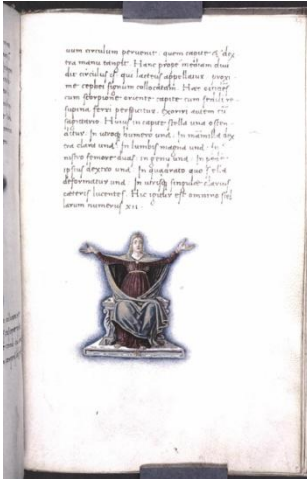 uum circulum peruenit. quem capite & dex
tra manu tangit. Hanc prope mediam diui
dit circulus is qui lacteus appellatur. proxi
me cephei signum collocatam. Haec
cum scorpione oriente capite cum sedili re
supina ferri perspicitur. exoriri autem cum
sagittario. Huius in capite stella una osten
ditur. In utroq humero una. In mamilla dex
tra clara una. In lumbis magna una. In
nistro femore duas. in genu una. In pede
ipsius dextro una. In quadrato quo sella
deformatur una. In utrisq singulae clarius
ceteris lucentes. Haec igitur est omnino stel
larum numerus XII.